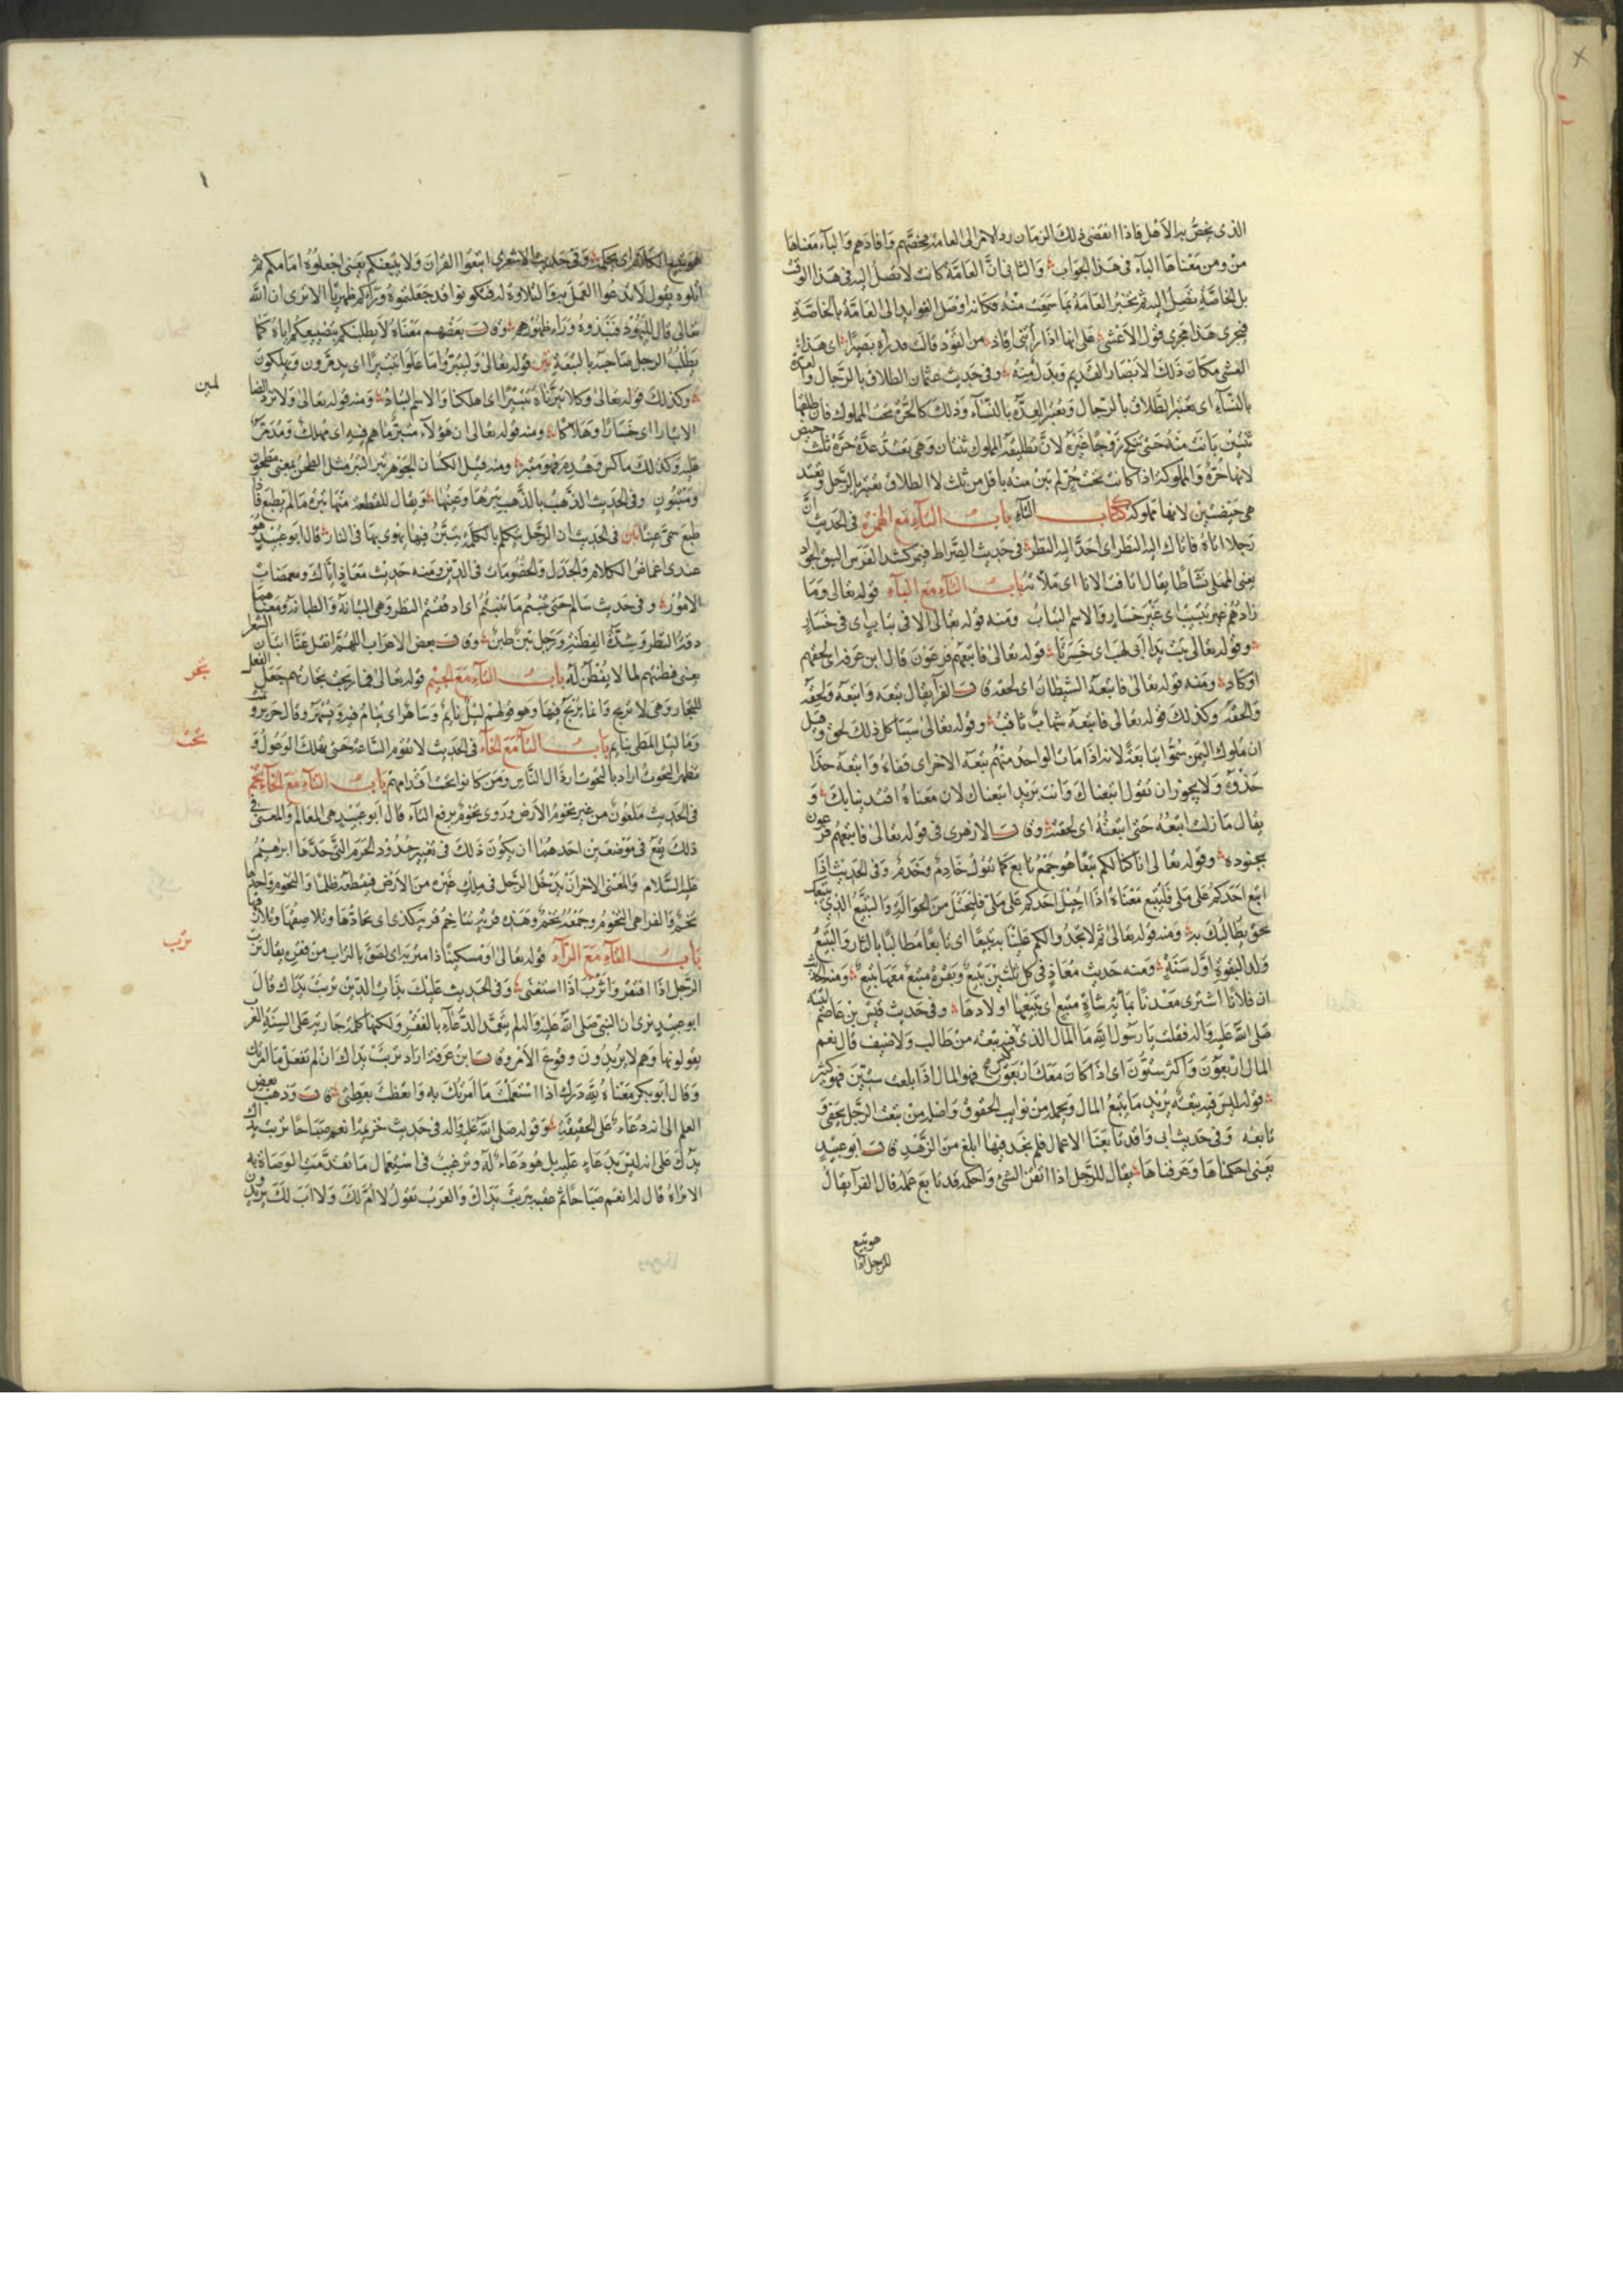 الذى يخصّ به الاهل فاذا انقضى ذلك الزمان رد الامر الى العامة فخصّهم وافادهم والباء معناها
من ومن معناها الباء فى هذا الجواب والثانى انّ العامّة كانت لا تصل اليه فى هذا الوقت
بل الخاصّة تصل اليه ثم تخبر العامة بما سمعت منه فكانه اوصل الفوايد الى العامّة بالخاصّة
فيجرى هذا مجرى قول الاعشى على انها اذا رأتنى اقاد من القود قالت قد أراه بصيرا اى هذا
العشى مكان ذلك الابصار القديم وبدل منه وفى حديث عثمان الطلاق بالرّجال والعدة
بالنّساء اى يعتبر الطّلاق بالرّجال ويعتبر العِدّة بالنّساء وذلك كالحرّة تحت المملوك فان طلقها
ثنتين بانت منه حتى تنكح زوجًا غيره لانّ تطليقة المملوك ثنتان وهى تعتدّ عدّة حرّة ثلث حيض
لانها حرّة والمملوكة اذا كانت تحت حرّ لم تبن منه باقل من ثلث لان الطلاق يعتبر بالرّجل وتعتد
هى حيضتين لانها مملوكة كتاب التاء باب التاء مع الهمزة فى الحديث انّ
رجلا اتاه فاتأر اليه النظر اى احدّ اليه النظر فى حديث الصّراط فيمر كشد الفرس التئق الجواد
يعنى الممتلى نشاطا يقال اتاقت الانا اى ملأته باب التاء مع الباء قوله تعالى وما
زادوهم غير تتبيب اى غير خسار والاسم التباب ومنه قوله تعالى الا فى تباب اى فى خسار
وقوله تعالى تبّت يدا ابى لهب اى خسرتا قوله تعالى فاتبعهم فرعون قال ابن عرفة اى لحقهم
او كاد ومنه قوله تعالى فاتبعه الشيطان اى لحقه قال الفرآ يقال تبعه واتبعه ولحقه
والحقه وكذلك قوله تعالى فاتبعه شهاب ثاقب وقوله تعالى سببا كل ذلك لحق وقيل
ان ملوك اليمن سمّوا تبابعة لانه اذا مات الواحد منهم تبعه الاخر اى قفاه واتبعه حذا
حذوه ولا يجوز ان تقول اتبعناك وانت تريد اتبعناك لان معناه اقتدينا بك و
يقال ما زلت اتبعه حتى اتبعته اى لحقته وقال الازهرى فى قوله تعالى فاتبعهم فرعون
بجنوده وقوله تعالى انا كنا لكم تبعا هو جمع تابع كما تقول خادم وخدم وفى الحديث اذا
اتبع احدكم على ملى فليتبع معناه اذا احيل احدكم على ملى فليحتل من الحوالة والتبيع الذى يتبعك
بحق يطالبك به ومنه قوله تعالى ثم لا تجدوا لكم علينا به تبيعا اى تابعا مطالبا بالثار والتبيع
ولد البقرة اوّل سنة ومنه حديث معاذ فى كل ثلثين تبيع وبقرة متبع معها تبيع ومنه الحديث
ان فلانا اشترى معدنا بمأية شاة متبع اى يتبعها اولادها وفى حديث قيس بن عاصم
صلى الله عليه واله فقلت يا رسول الله ما المال الذى ليس فيه تبعة من طالب ولا ضيف قال نعم
المال اربعون واكثر ستّون اى اذا كان معك اربعون فهو المال اذا بلغت ستين فهو كثير
قوله ليس فيه تبعة يريد ما يتبع المال ويحمله من نوايب الحقوق واصله من تبعت الرّجل بحقى و
تابعته وفى حديث ابى واقد تابعنا الاعمال فلم نجد فيها ابلغ من الزهد قال ابو عبيد
يعنى احكمناها وعرفناها يقال للرّجل اذا اتقن الشئ واحكمه قد تابع عمله قال الفرآ يقال
هو تبيع
للرجل اذا
هو تبيع الكلام اى يحكمه وفى حديث الاشعرى اتبعوا القران ولا يتبعنكم يعنى اجعلوه امامكم ثم
اتلوه يقول لا تدعوا العمل به والتلاوة له فتكونوا قد جعلتموه وراءكم ظهريّا الا ترى ان الله
تعالى قال لليهود فنبذوه وراء ظهورهم وقال بعضهم معناه لا يطلبنكم بتضييعكم اياه كما
يطلب الرجل صاحبه بالتبعة تبر قوله تعالى وليتبّروا ما علوا تتبيرا اى يدمّرون ويهلكون
وكذلك قوله تعالى وكلا تبّرناه تتبيرا اى اهلكنا والاسم التبار ومنه قوله تعالى ولا تزد الظا
لمين
الا تبارا اى خسارا وهلاكا ومنه قوله تعالى ان هؤلاء متبّر ما هم فيه اى مهلك ومدمّر
عليه وكذلك ما كسر وهدم فهو متبر ومنه قيل لكسار الجوهر تبر التبر مثل الطحن بمعنى مطحون
ومتبور وفى الحديث الذّهب بالذّهب تبرها وعينها ويقال للقطعة منها تبرة ما لم يطبع فاذا
طبع سمّى عينا تبن فى الحديث ان الرّجل يتكلم بالكلمة يتبّن فيها يهوى بها فى النار قال ابو عبيد هو
عندى اغماض الكلام والجدل والخصومات فى الدّين ومنه حديث معاذ اياك ومغمضات
الامور وفى حديث سالم حتى تبنتم ما تبنتم اى ادققتم النظر وهى التبانة والطبانة ومعناهما
دقة النظر وشدّة الفطنة ورجل تبن طبن وقال بعض الاعراب اللهمّ اشغل عنّا اتبان الشعر
يعنى فطنتهم لما لا يفطن له باب التاء مع الجيم قوله تعالى فما ربحت تجارتهم جعل الفعل
تجر
للتجارة وهى لا تربح وانما يربح فيها وهو قولهم ليل نايم وساهر اى ينام فيه ويسهر وقال جرير و
وما ليل المطى بنايم باب التاء مع الحاء فى الحديث لا تقوم الساعة حتى يهلك الوعول و
تحت
تظهر التحوت اراد بالتحوت ارذال النّاس ومن كانوا تحت اقدامهم باب التاء مع الخاء تخم
فى الحديث ملعون من غير تخوم الارض وروى تخوم برفع التاء قال ابو عبيد هى المعالم والمعنى فى
ذلك يقع فى موضعين احدهما ان يكون ذلك فى تغيير حدود الحرم التى حدّها ابرهيم
عليه السّلام والمعنى الاخر ان يدخل الرّجل فى ملك غيره من الارض فيقطعه ظلما والتخوم واحدها
تخم وقال الفرا هى التخوم وجمعه تخم وهذه قرية تتاخم قرية كذى اى تحادّها وتلاصقها وتلازقها
باب التاء مع الراء قوله تعالى او مسكينا ذا متربة اى لصق بالتراب من فقره يقال ترب
ترب
الرّجل اذا افتقر واترب اذا استغنى وفى الحديث عليك بذات الدّين تربت يداك قال
ابو عبيد نرى ان النبى صلى الله عليه واله لم يتعمّد الدعاء بالفقر ولكنها كلمة جارية على السنة العرب
يقولونها وهم لا يريدون وقوع الامر وقال ابن عرفة اراد تربت يداك ان لم تفعل ما امرتك
وقال ابو بكر معناه لله درك اذا استعملت ما امرتك به واتعظت بعظتى قال وذهب بعض
العلم الى انه دعاء على الحقيقة وقوله صلى الله عليه واله فى حديث خزيمة انعم صباحا تربت يداك
يدلّ على انه ليس بدعاء عليه بل هو دعاء له وترغيب فى استعمال ما تقدّمت الوصاة به
الا تراه قال له انعم صباحا ثم عقبه بتربت يداك والعرب تقول لا امّ لك ولا اب لك يريدون